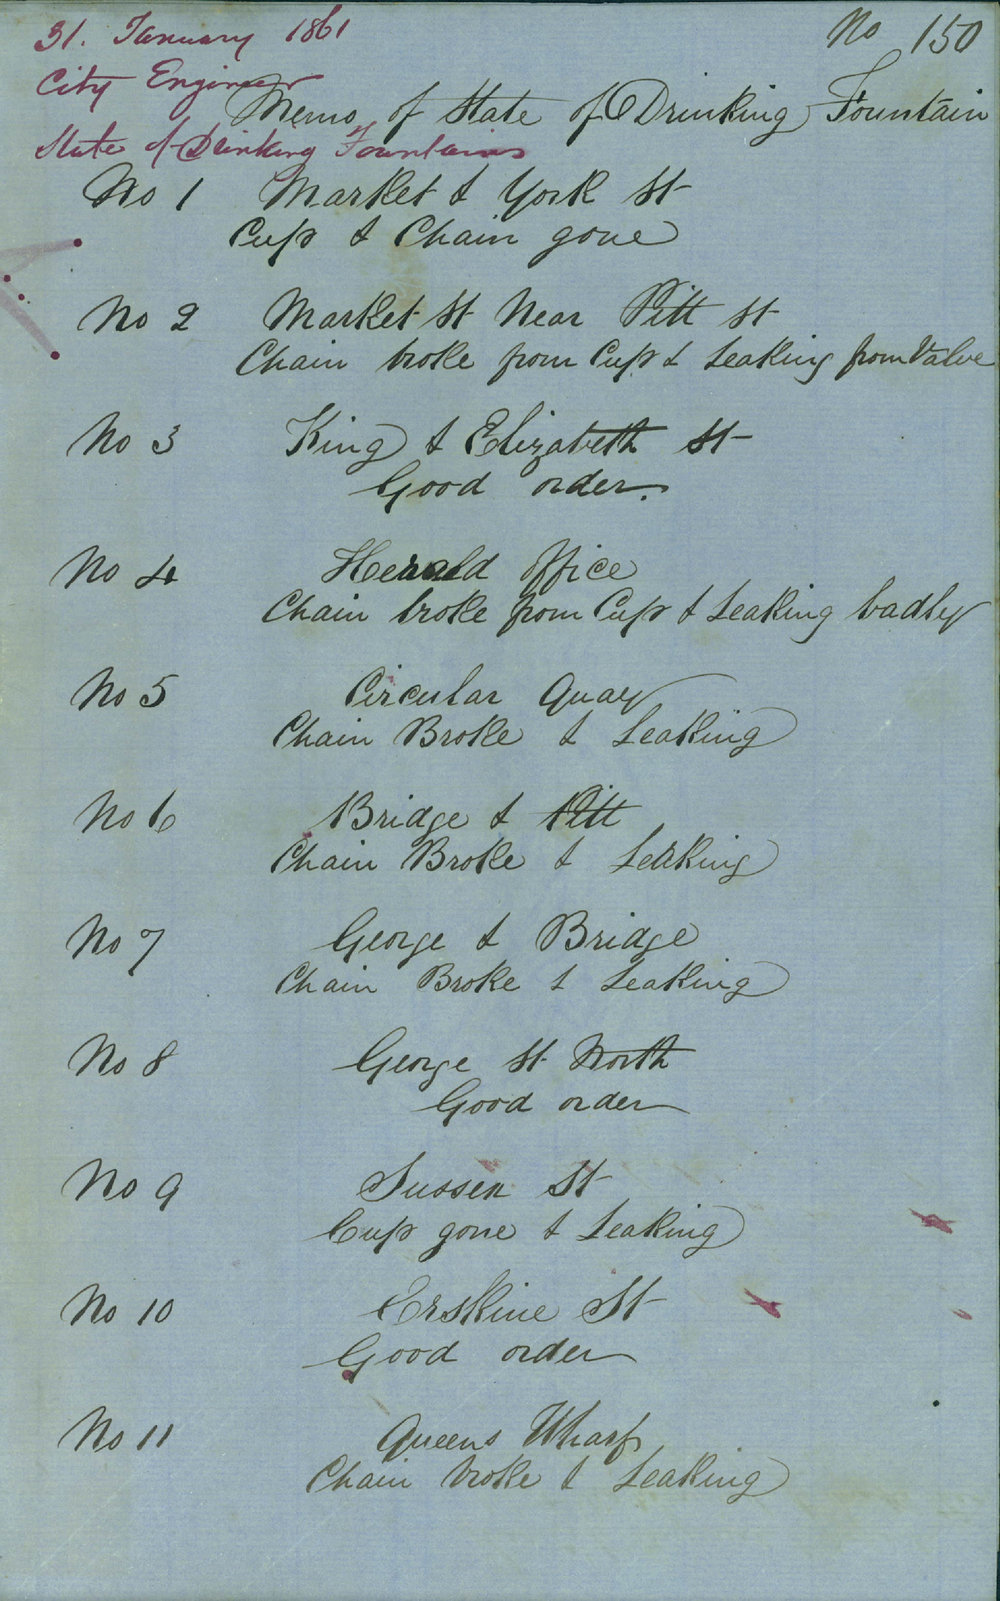 31. January 1861
No 150
City Engineer
Memo of State of Drinking Fountain
State of Drinking Fountains
No 1 Market & York St
Cup & Chain gone
No 2 Market St Near Pitt St
Chain broke from Cup & Leaking from Valve
No 3 King & Elizabeth St
Good order.
No 4 Herald Office
Chain broke from Cup & Leaking badly
No 5 Circular Quay
Chain Broke & Leaking
No 6 Bridge & Pitt
Chain Broke & Leaking
No 7 George & Bridge
Chain Broke & Leaking
No 8 George St North
Good order
No 9 Sussex St
Cup gone & Leaking
No 10 Erskine St
Good order
No 11 Queens Wharf
Chain broke & Leaking